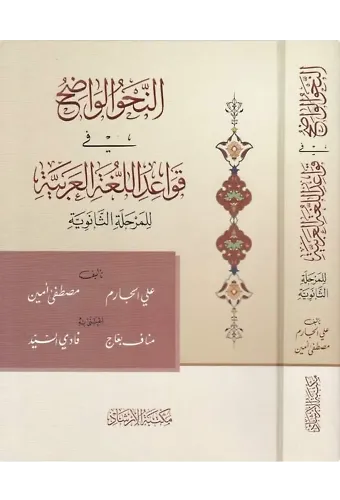 النَّحْوُ الْوَاضِحُ
فِي
قَوَاعِدِ اللُّغَةِ الْعَرَبِيَّةِ
لِلْمَرْحَلَةِ الثَّانَوِيَّةِ
تأليف
علي الجارم مصطفى أمين
مناف بعاج فادي السيّد
مكتبة الإرشاد
النَّحْوُ الْوَاضِحُ
فِي
قَوَاعِدِ اللُّغَةِ الْعَرَبِيَّةِ
لِلْمَرْحَلَةِ
الثَّانَوِيَّةِ
تأليف
علي الجارم
مصطفى أمين
مكتبة الإرشاد